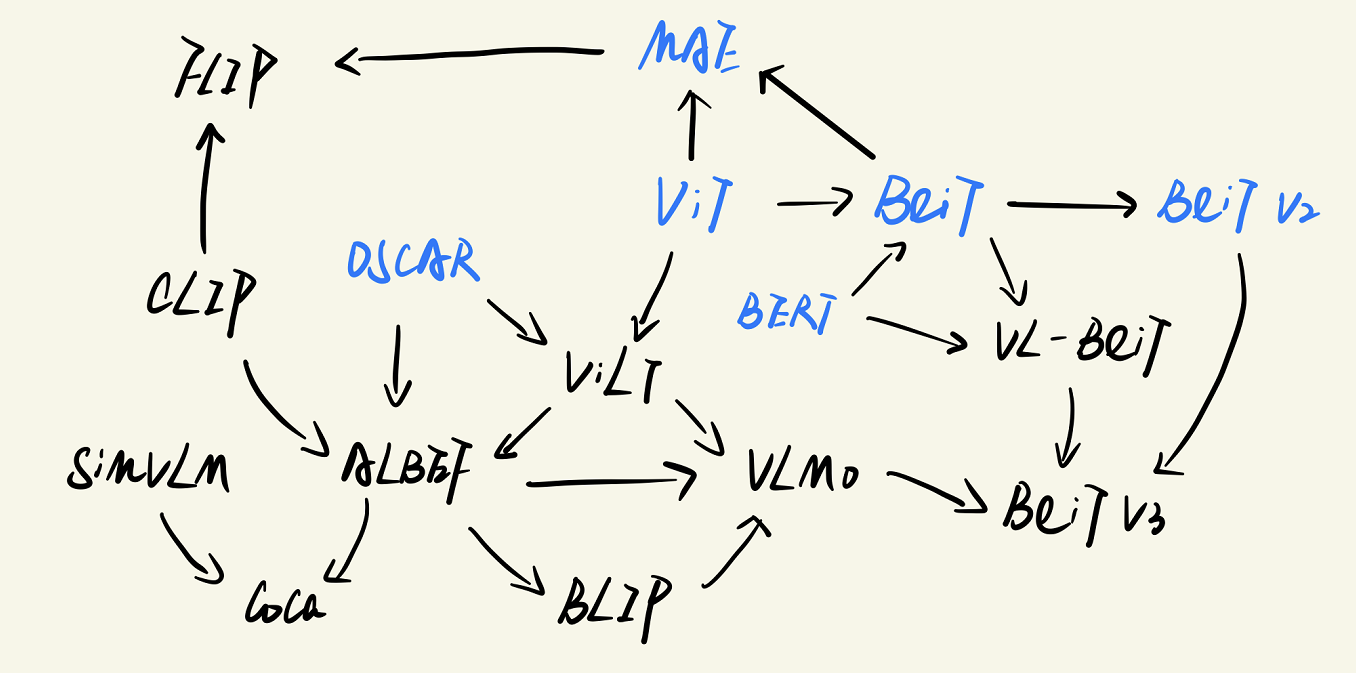 FLIP
MAE
ViT
BeiT
BeiT v2
OSCAR
CLIP
BERT
VL-BeiT
ViLT
SimVLM
ALBEF
VLMo
BeiT v3
CoCa
BLIP